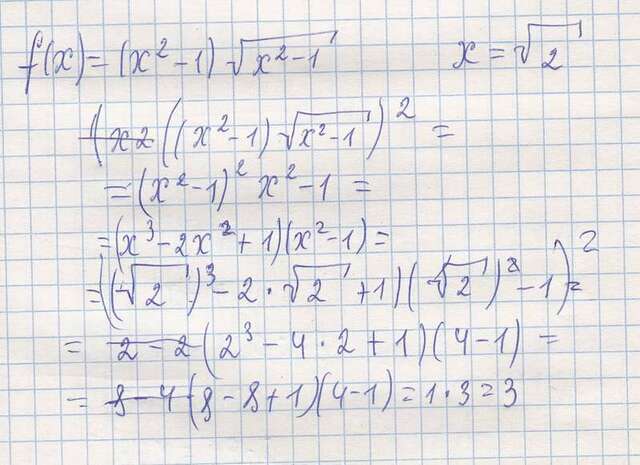 f(x)=(x²-1)√(x²-1)    x=√2
((x²-1)√(x²-1))² =
=(x²-1)² x²-1 =
=(x³-2x²+1)(x²-1)=
=((√2)³-2·√2+1)(√2)²-1)²=
= (2³-4·2+1)(4-1) =
= (8-8+1)(4-1)=1·3=3